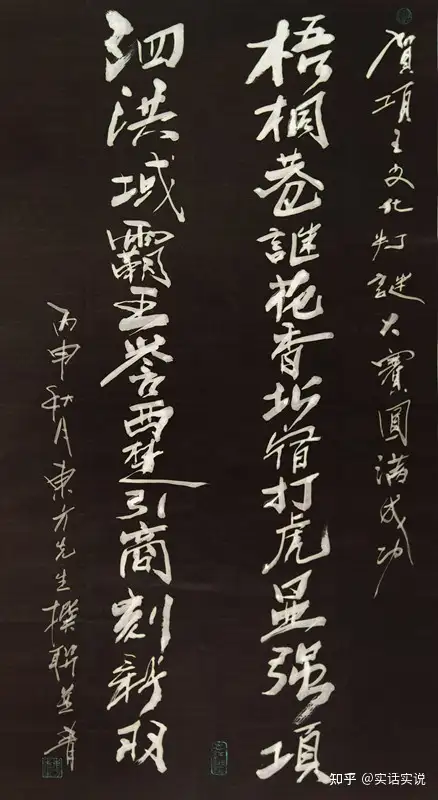 賀項王文化灯謎大賽圓滿成功
梧桐巷謎花香北宿打虎显强項
泗洪域霸王誉西楚引商刻新羽
丙申秋月東方先生撰联並書
知乎 @实话实说